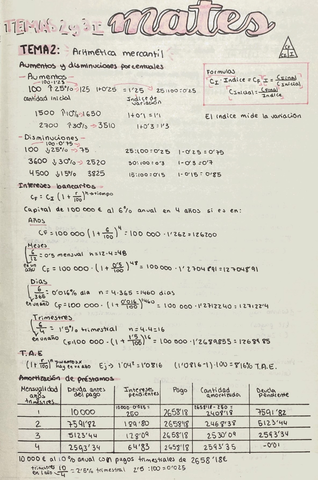 TEMAS 2 y 3: mates
TEMA2: Aritmética mercantil
Aumentos y disminuciones porcentuales
- Aumentos
100·1'25
100 ↑25% → 125 1+0'25 = 1'25 25:100=0'25
cantidad inicial Índice de variación
1500 ↑10% 1650 1+0'1 = 1'1
2700 ↑30% → 3510 1+0'3 = 1'3
Formulas
CI · Indice = CF
Indice = C final / C inicial
C inicial = C final / Indice
CF
CI
El indice mide la variación
- Disminuciones
100·0'75
100 ↓25% → 75 25:100=0'25 1-0'25 = 0'75
3600 ↓30% → 2520 30:100=0'3 1-0'3=0'7
4500 ↓15% 3825 15:100=0'15 1-0'15=0'85
Intereses bancarios
CF = CI (1 + r/100)
Capital de 100 000 € al 6% anual en 4 años si es en:
Años
CF = 100 000 (1 + 6/100)^4 = 100 000 · 1'262 = 126200
Meses
0'5 mensual n=12·4=48
CF = 100 000 · (1 + 0'5/100)^48 = 100 000 · 1'2704891 = 127048'91
Días
6/365 = 0'016% día n = 4·365 = 1460 días
Trimestres
6/4 = 1'5% trimestral n = 4·4 = 16
CF = 100 000 · (1 + 1'5/100)^16 = 100 000 · 1'2689855 = 126898'55
T.A.E
Ej → 1'04² = 1'0816 (1'0816-1)·100 = 8'16% T.A.E.
Amortización de préstamos
Mensualidad años trimestres | Deuda antes del pago | Intereses pendientes | Pago | Cantidad amortizada | Deuda pendiente
1 | 10000 | 250 | 2658'18 | 2408'18 | 7591'82
2 | 7591'82 | 189'80 | 2658'18 | 2468'38 | 5123'44
3 | 5123'44 | 128'09 | 2658'18 | 2530'09 | 2593'34
4 | 2593'34 | 64'83 | 2658'18 | 2593'35 | -0'01
10 000 € al 10% anual con pagos trimestrales de 2658'18€
trimestre 10/4 = 2'5% trimestral 2'5:100=0'025